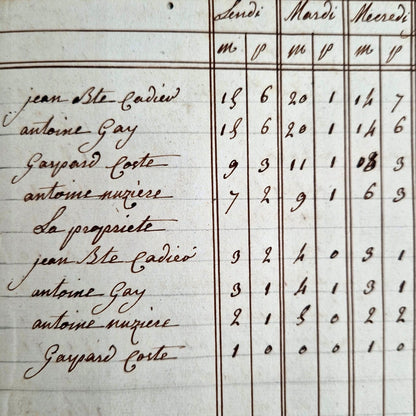 Lundi Mardi Mecredi
m p m p m p
jean Bte Cadieu 15 6 20 1 14 7
antoine Gay 15 6 20 1 14 6
Gaspard Coste 9 3 11 1 8 3
antoine nuzière 7 2 9 1 6 3
La propriete
jean Bte Cadieu 3 2 4 0 3 1
antoine Gay 3 1 4 1 3 1
antoine nuzière 2 1 3 0 2 2
Gaspard Coste 1 0 0 0 1 0